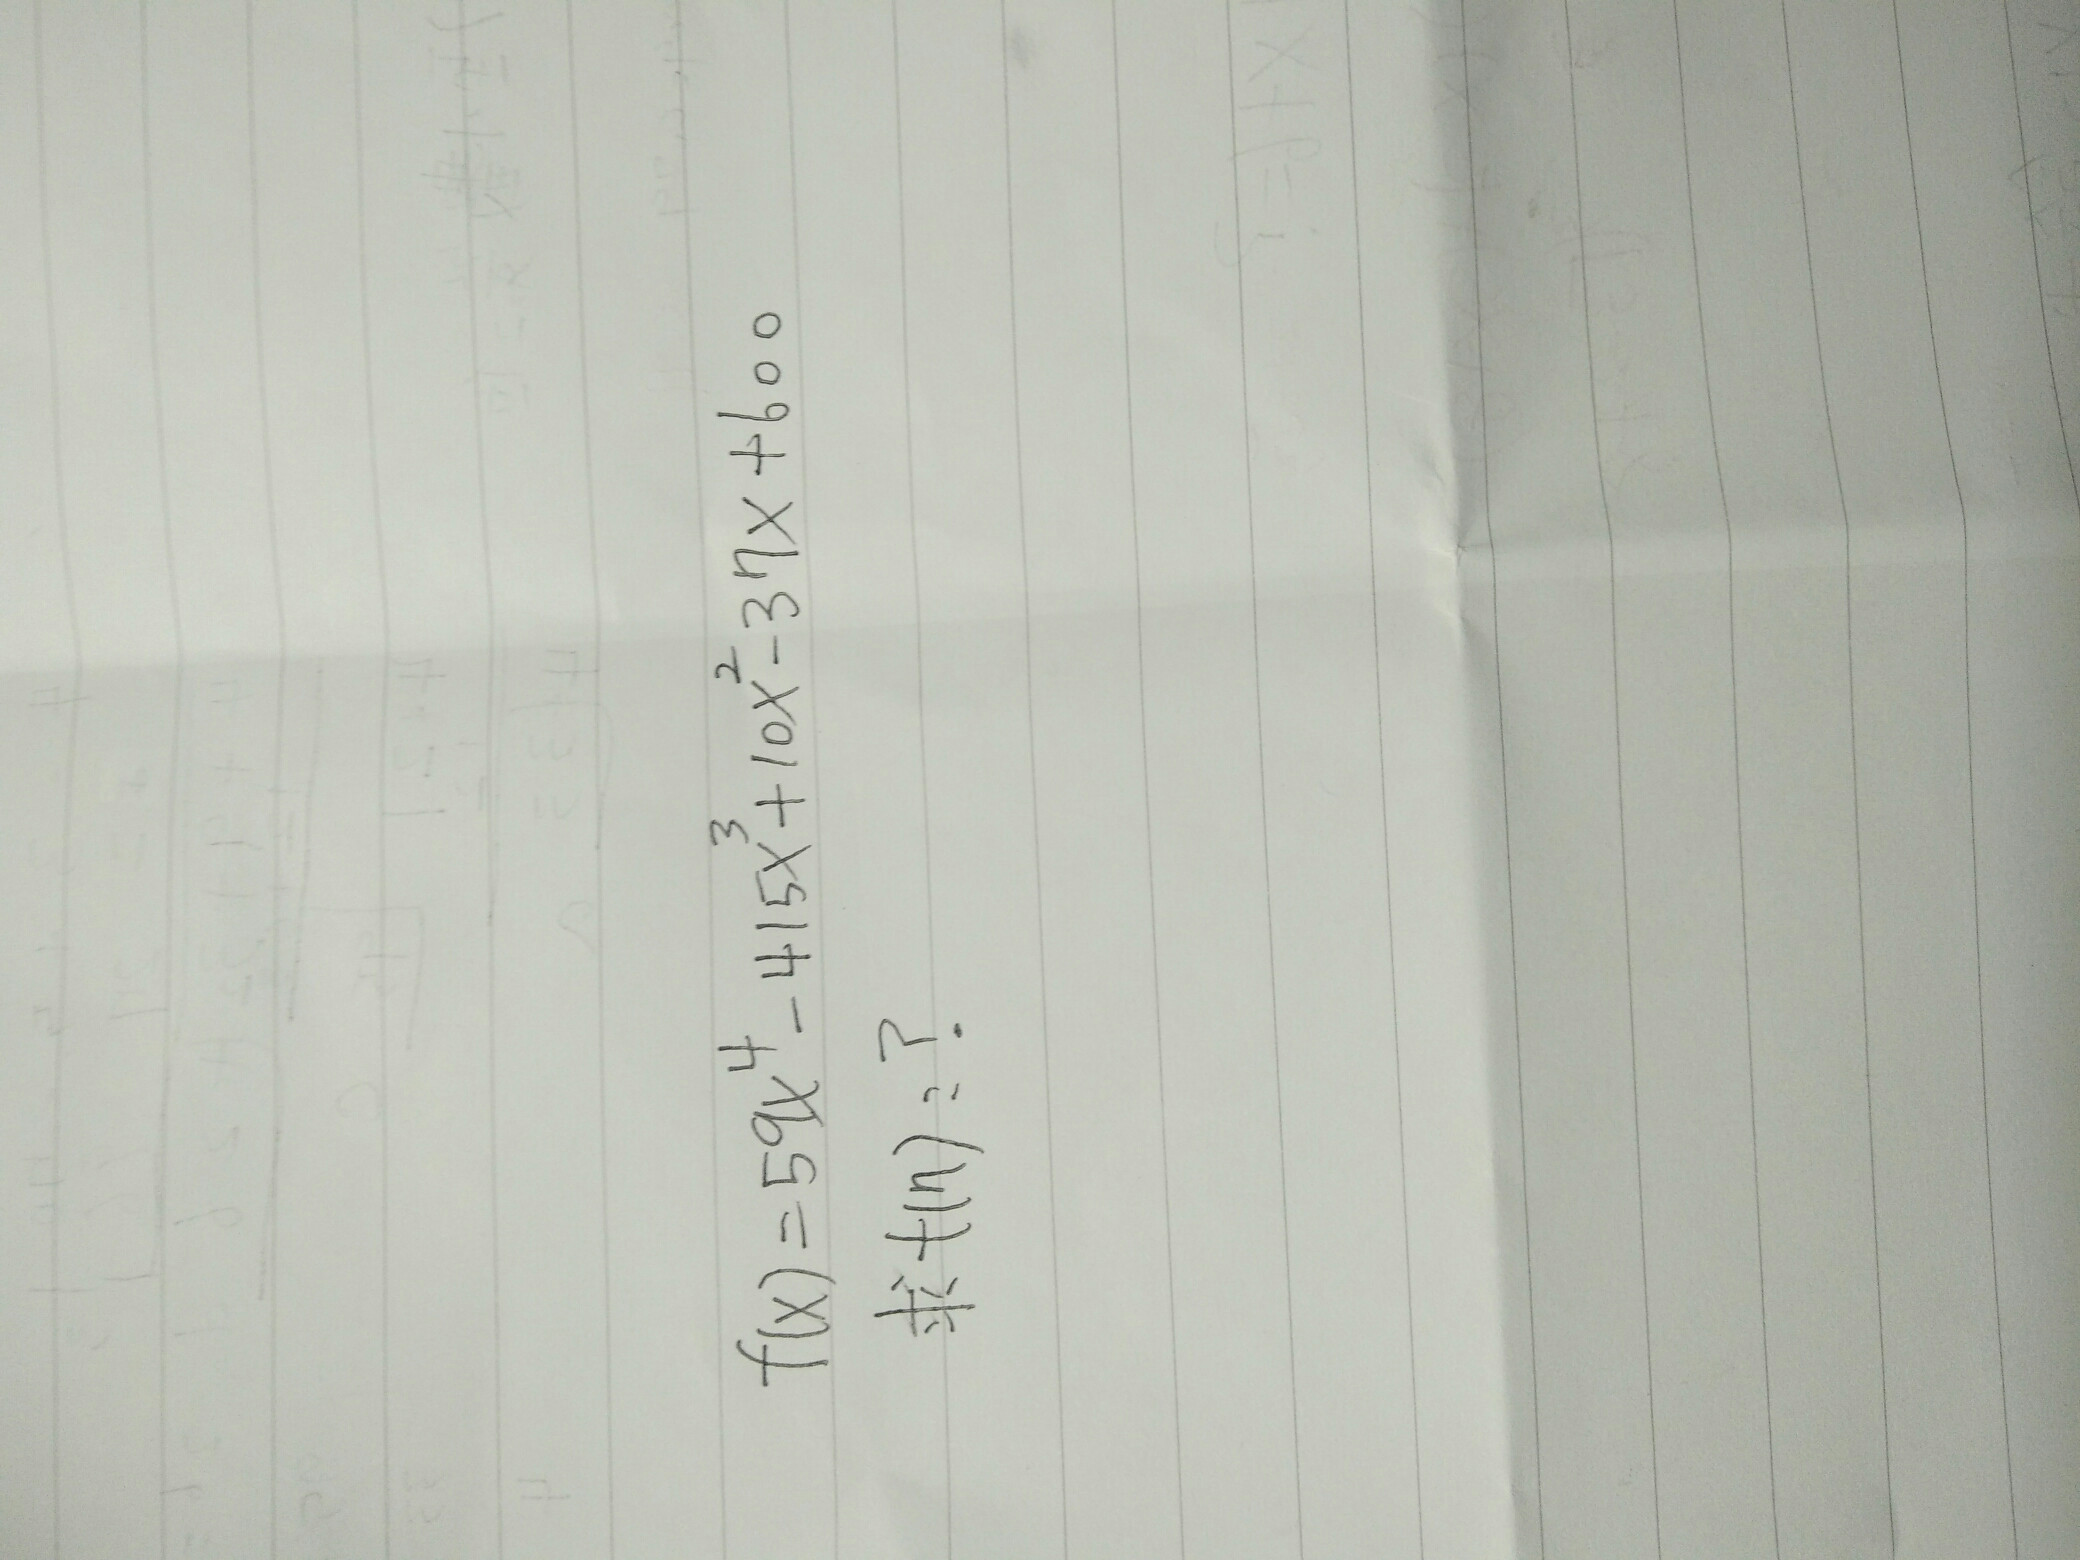 f(x)=59x⁴-415x³+10x²-37x+600
求f(7)=?